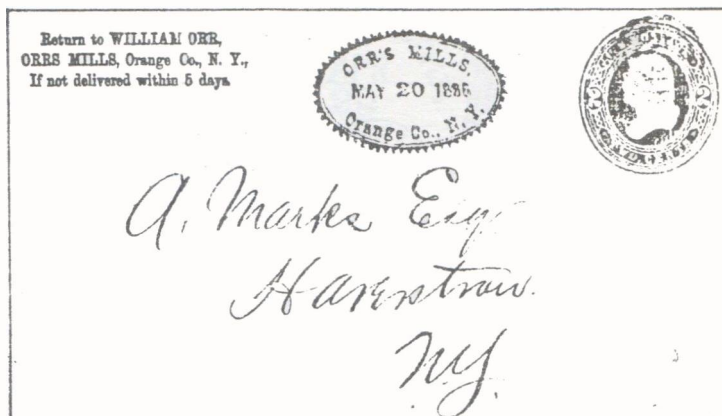 Return to WILLIAM ORR,
ORRS MILLS, Orange Co., N. Y.,
If not delivered within 5 days
ORR'S MILLS.
MAY 20 1886
Orange Co., N. Y.
A. Marks Esq
Haverstraw.
NY.